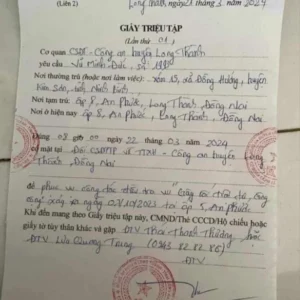 (Liên 2)
Long Thành, ngày 21 tháng 3 năm 2024
GIẤY TRIỆU TẬP
(Lần thứ 01)
Cơ quan CSĐT - Công an huyện Long Thành
yêu cầu Vũ Minh Đức,
Nơi thường trú (hoặc nơi làm việc): xóm 13, xã Đồng Hướng, huyện
Kim Sơn, tỉnh Ninh Bình
Nơi tạm trú: ấp 8, An Phước, Long Thành, Đồng Nai
Nơi ở hiện nay ấp 8, An Phước, Long Thành, Đồng Nai
Đúng 08 giờ 00 ngày 22 tháng 03 năm 2024
có mặt tại Đội CSĐTTP về - Công an huyện Long
Thành, Đồng Nai
để phục vụ công tác điều tra vụ "Gây rối trật tự công
cộng" xảy ra ngày tại ấp 5, An Phước
Khi đến mang theo Giấy triệu tập này, CMND/Thẻ CCCD/Hộ chiếu hoặc
giấy tờ tùy thân khác và gặp ĐTV Thái Thanh Thương, hoặc
ĐTV Lưu Quang Trung
ĐTV